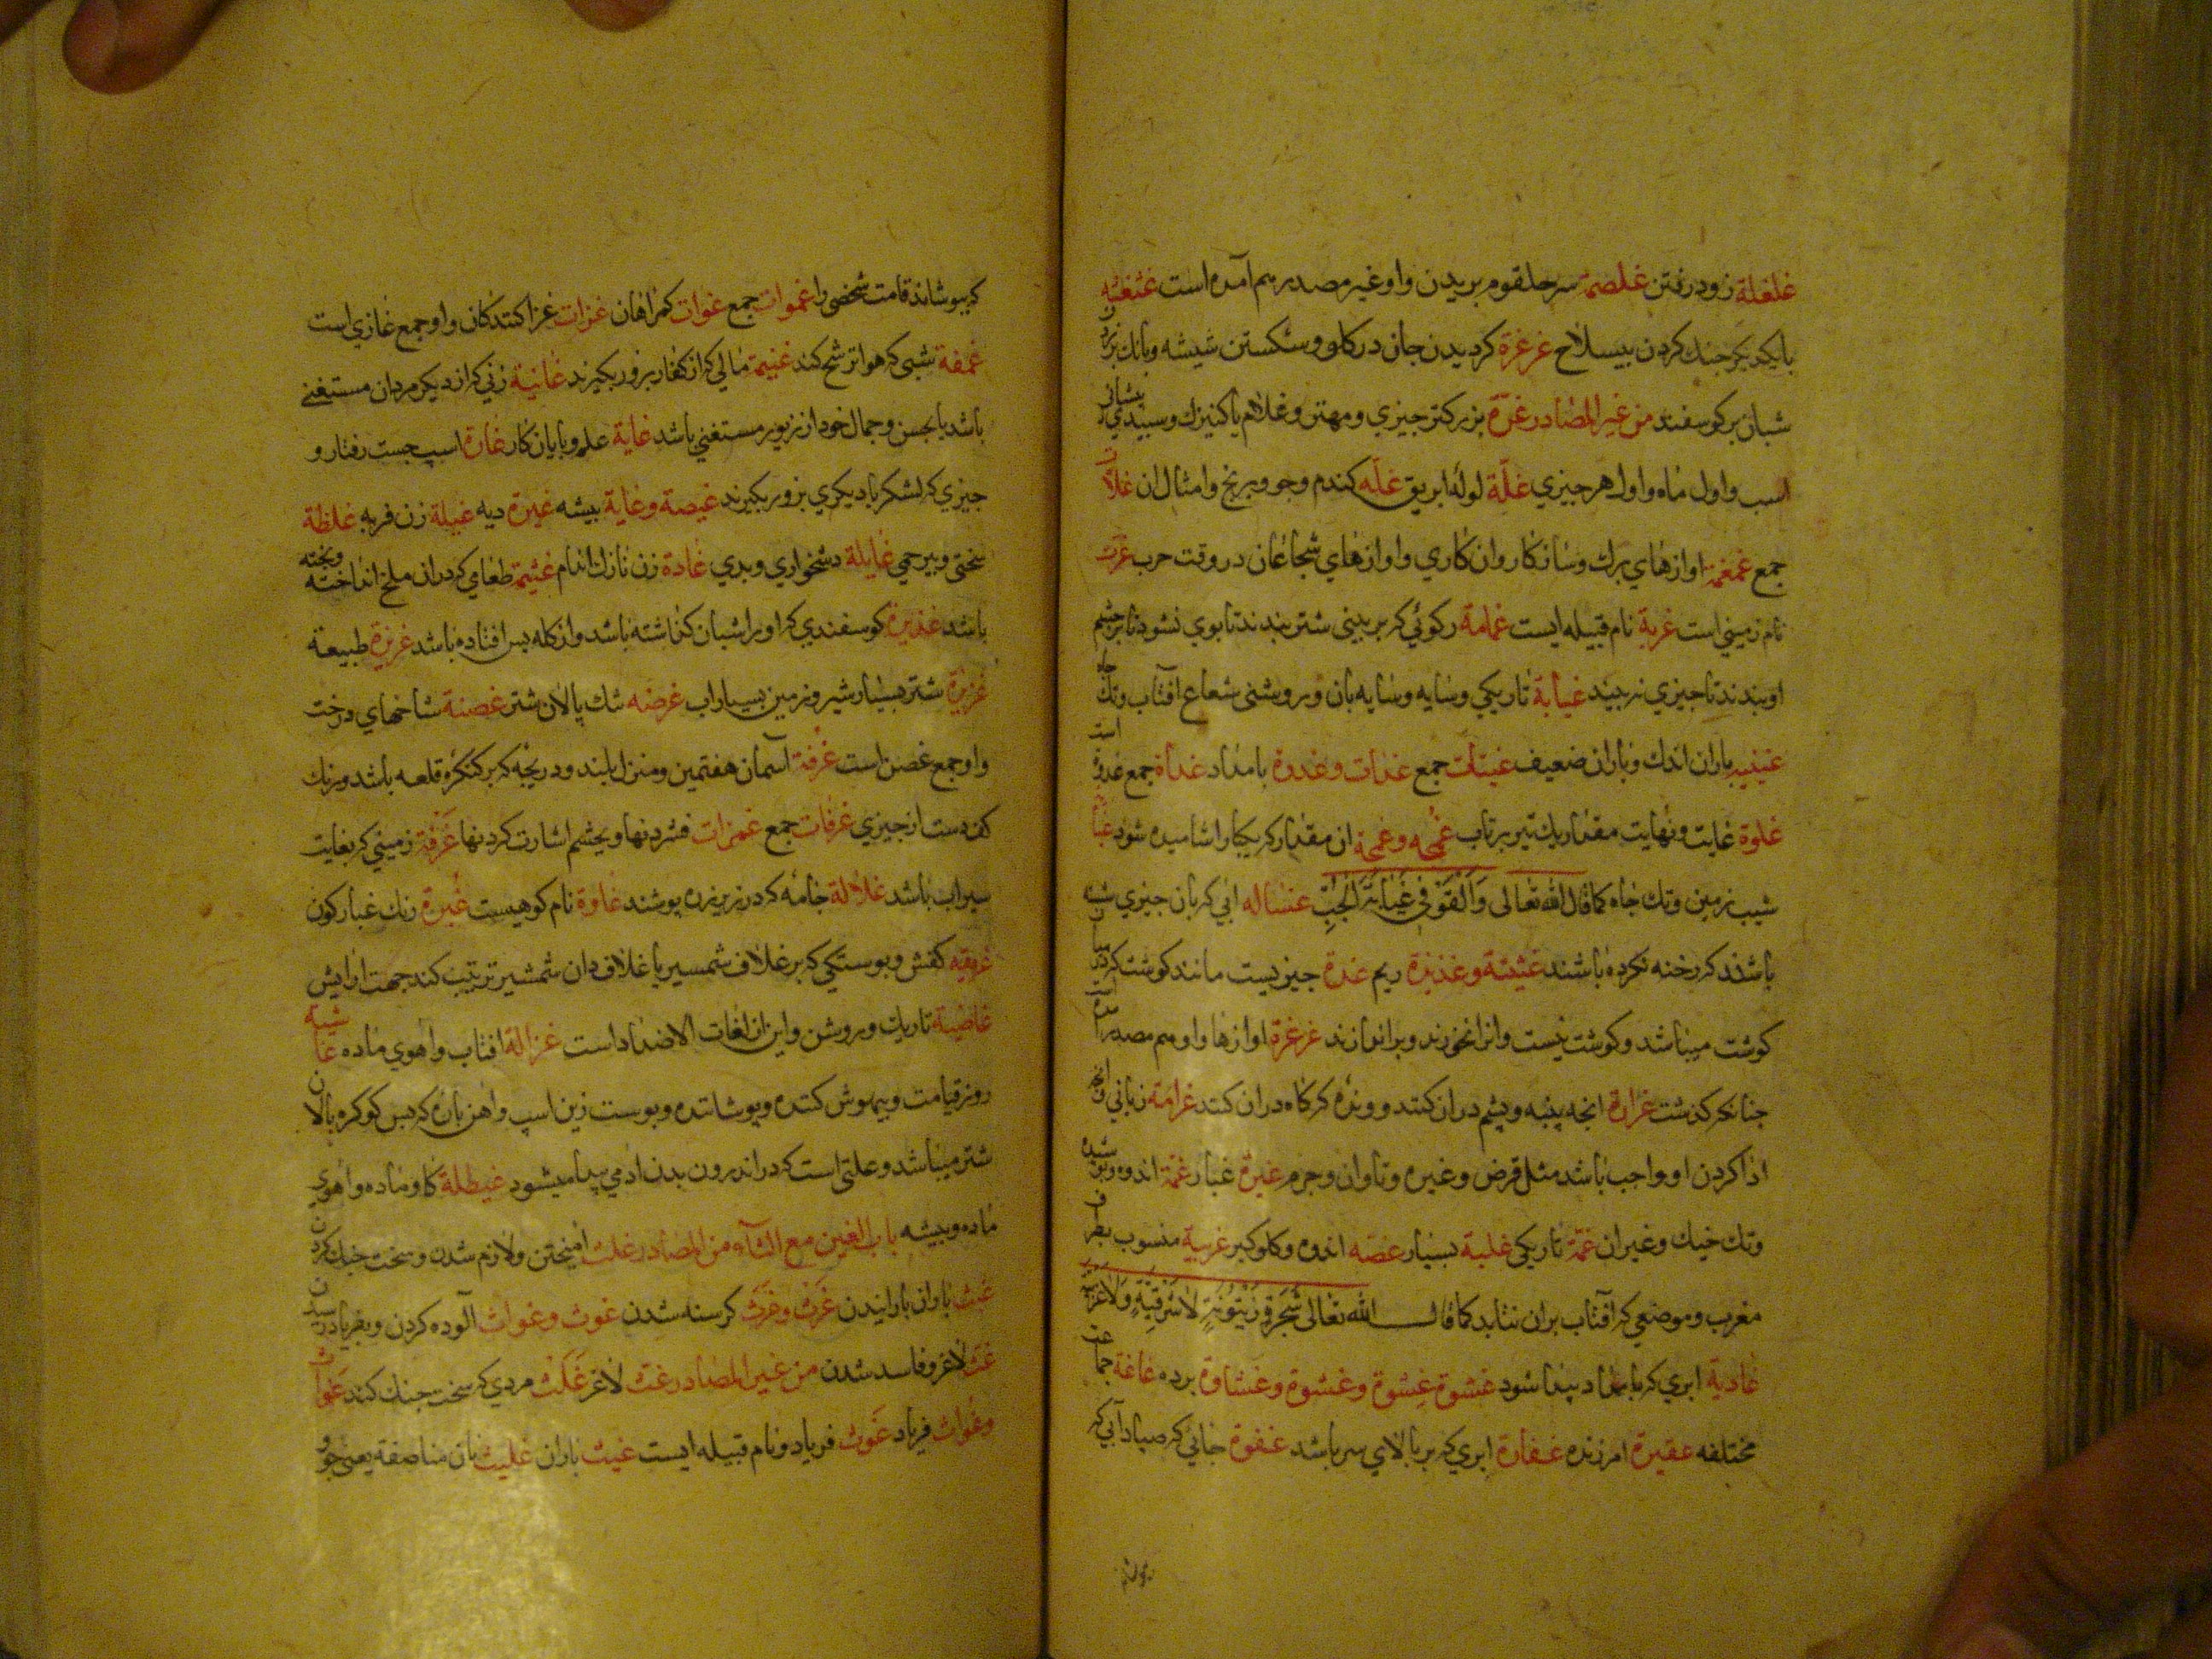 غلغلة زود رفتن غلصمة سر حلقوم بریدن واو غیر مصدر هم آمده است غثغثه
بایکدیکر جنك کردن بیسلاح غرغرة کردیدن جان در کلو و شکستن شیشه وبانك زدن
شبان بر کوسفند من غیر المصادر غرّة بزرکتر چیزي ومهتر وغلام یا کنیزك وسبیدي پیشانی
اسب واول ماه واول هر جیزي غلّة لولۀ ابریق غلّه کندم وجو وبرنج وامثال ان غلات
جمع غمغمة اوازهاي برك وسانکار وان کاري واوازهاي شجاعان در وقت حرب غزت
نام زمینی است غریة نام قبیله ایست غمامة رکوئي که بر بینی شتر بندند تا بوي نشنود تا بر چشم
او بندند تا جیزي نه بیند غیابة تاریکي وسایه وسایه بان وروشنی شعاع افتاب وتك جاه
غیبیه باران اندك وباران ضعیف است غیبات جمع غدات وغدوة بامداد غداة جمع غدوة
غلوة غایت ونهایت مقدار یك تیر برتاب غمجه وغمجة ان مقدار که یکبار اشامیده شود غیابة
شیب زمین وتك جاه کما قال الله تعالی وَأَلْقُوهُ فِي غَيَابَةِ الْجُبِّ غساله ابي که بان جیزي شسته
باشند که رخنه نکرده باشند غثیثة وغذیذة ریم غدة جیزیست مانند کوشت که در میان
کوشت میباشد وکوشت نیست وانرا نخورند وبراندازند غرغرة اوازها واو هم مصدر است
جنانکه کذشت غرارة انجه پنبه وپشم دران کنند ووندۀ که کاه دران کنند غرامة زیاني وانجه
ادا کردن او واجب باشد مثل قرض وغیره وتاوان وجرم غبرة غبار غمة اندوه وپوشیده
وتك خیك وغیر ان غمّة تاریکي غلبة بسیار غصّه اندوه وکلوکیر غربیة منسوب بطرف
مغرب وموضعي که آفتاب بران نتابد کما قال الله تعالی شَجَرَةٍ زَيْتُونَةٍ لَا شَرْقِيَّةٍ وَلَا غَرْبِيَّةٍ
غادیة ابري که بامداد پیدا شود غشوة غِشوة وغُشوة وغشاوة برده غاغة جماعت
مختلفه غفیرة امرزنده غفارة ابري که بر بالاي سر باشد غفوة جائي که صیاد آبي که
که بپوشاند قامت شخصی را غموات جمع غوات کمراهان غزات غزا کنندکان واو جمع غازي است
غمقة شبی که هوا ترشح کند غنیمة مالي که از کفار بزور بکیرند غانیة زني که از دیکر مردان مستغنی
باشد یا بحسن وجمال خود از زیور مستغني باشد غایة علم وبایان کار غارة اسب جست رفتار و
جیزي که لشکر با دیکري بزور بکیرند غیضة وغایة بیشه غیرة دیه غیلة زن فربه غلظة
سختی وبیرحمي غایلة دشخواري وبدي غادة زن نازك اندام غثیمة طعامي که دران ملخ انداخته وپخته
باشد غذیرة کوسفندي که او را شبان کذاشته باشد واز کله بس افتاده باشد غریزة طبیعة
غزیرة شتر بسیار شیر وزمین بسیاراب غرضه تنك پالان شتر غصنة شاخهاي درخت
واو جمع غصن است غُرفة آسمان هفتمین ومنزل بلند ودریجه که بر کنکرۀ قلعه باشد وزیك
کف دست از جیزي غرفات جمع غمزات فشردنها وبچشم اشارت کردنها غَرِقَة زمیني که بغایت
سیراب باشد غلالة جامه که در زیر زره پوشند غاوة نام کوهیست غُبرة رنك غبارکون
غریفه کفش وپوستکي که بر غلاف شمشیر یا غلاف دان شمشیر ترتیب کند جهت ارایش
غاضیة تاریك وروشن واین از لغات الاضداد است غزالة افتاب واهوي ماده غاشیة
روز قیامت وبیهوش کننده وپوشاننده وپوست زین اسب واهن باره که بس کوکره بالان
شتر میباشد وعلتی است که در اندرون بدن ادمي پیدا میشود غیطلة کاو ماده واهوي
ماده وبیشه باب الغین مع الثآء من المصادر غلث امیختن ولازم شدن وسخت جنك کردن
غیث باران بارانیدن غَرَث وغَرْث کرسنه شدن غوث وغواث آلوده کردن وبفریاد رسیدن
غث لاغر وفاسد شدن من غیر المصادر غث لاغر غَلِث مردي که سخت جنك کند غَواث
وغُواث فریاد غَوث فریاد ونام قبیله ایست غیث باران غلیث نان مناصفة یعنی جو و